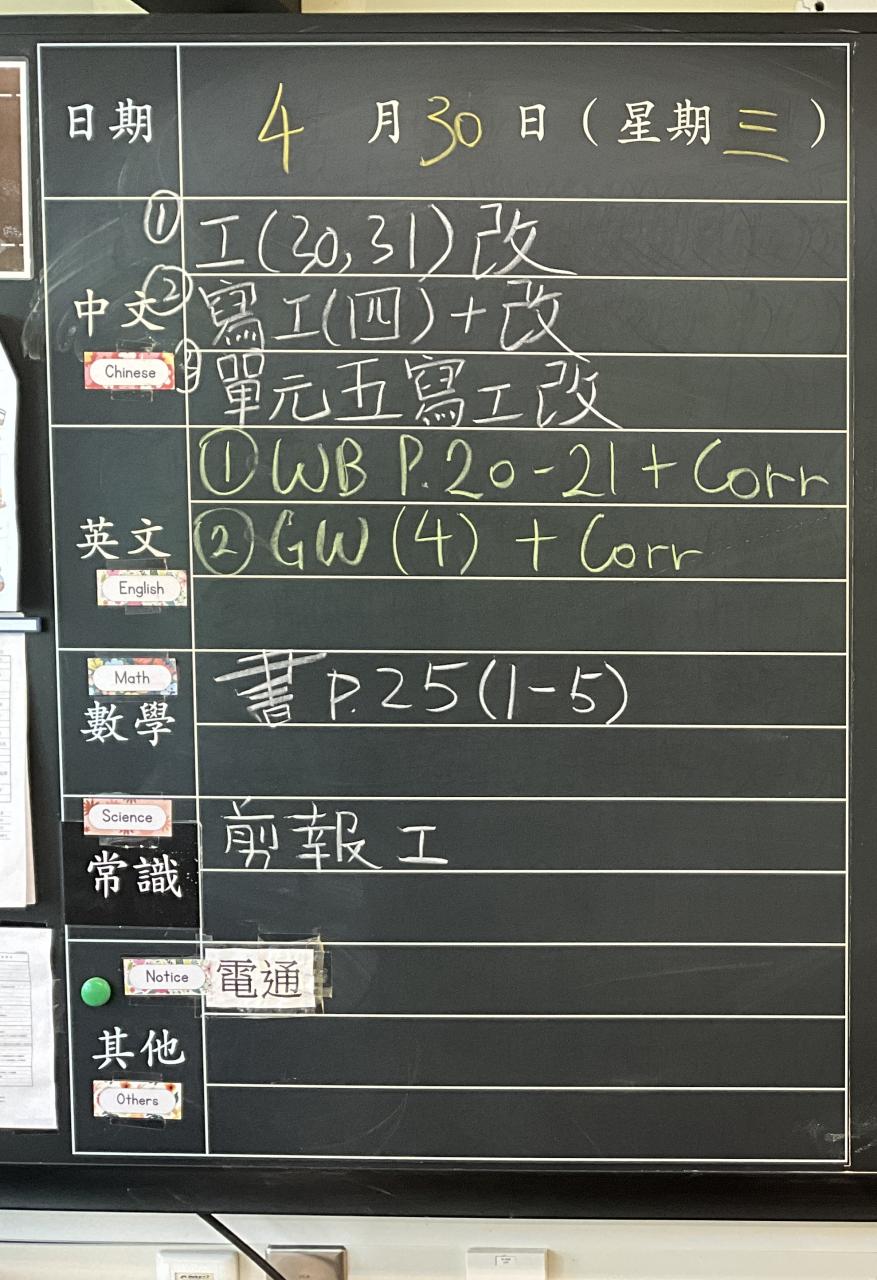 日期 4 月 30 日 ( 星期 三 )
① 工(30,31) 改
中文 ② 寫工(四)+改
Chinese ③ 單元五寫工改
① WB P.20-21 + Corr
英文 ② GW (4) + Corr
English
Math 書 P.25(1-5)
數學
Science 剪報工
常識
Notice 電通
其他
Others